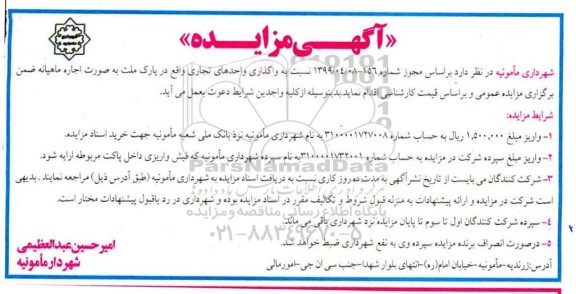 «آگهی مزایده»
شهرداری مأمونیه در نظر دارد براساس مجوز شماره ۱۵۶-۱۳۹۹/۰۴/۰۸ نسبت به واگذاری واحدهای تجاری واقع در پارک ملت به صورت اجاره ماهیانه ضمن
برگزاری مزایده عمومی و براساس قیمت کارشناسی اقدام نماید.بدینوسیله ازکلیه واجدین شرایط دعوت بعمل می آید.
شرایط مزایده:
۱- واریز مبلغ ۱,۵۰۰,۰۰۰ ریال به حساب شماره ۳۱۰۰۰۰۱۷۲۷۰۰۸ به نام شهرداری مأمونیه نزد بانک ملی شعبه مأمونیه جهت خرید اسناد مزایده.
۲- واریز مبلغ سپرده شرکت در مزایده به حساب شماره ۳۱۰۰۰۰۱۷۳۲۰۰۱ به نام سپرده شهرداری مأمونیه که فیش واریزی داخل پاکت مربوطه ارایه شود.
۳- شرکت کنندگان می بایست از تاریخ نشرآگهی به مدت ده روز کاری نسبت به دریافت اسناد مزایده به شهرداری مأمونیه (طبق آدرس ذیل) مراجعه نمایند . بدیهی
است شرکت در مزایده و ارائه پیشنهادات به منزله قبول شروط و تکالیف مقرر در اسناد مزایده بوده و شهرداری در رد یاقبول پیشنهادات مختار است.
۴- سپرده شرکت کنندگان اول تا سوم تا پایان مزایده نزد شهرداری باقی می ماند.
۵- درصورت انصراف برنده مزایده سپرده وی به نفع شهرداری ضبط خواهد شد.
آدرس:زرندیه-مأمونیه-خیابان امام(ره)-انتهای بلوار شهدا-جنب سی ان جی-امورمالی
امیرحسین عبدالعظیمی
شهردار مأمونیه
ParsNamadData
پایگاه اطلاع رسانی مناقصه و مزایده
۰۲۱-۸۸۳۴۹۶۷۰-۵